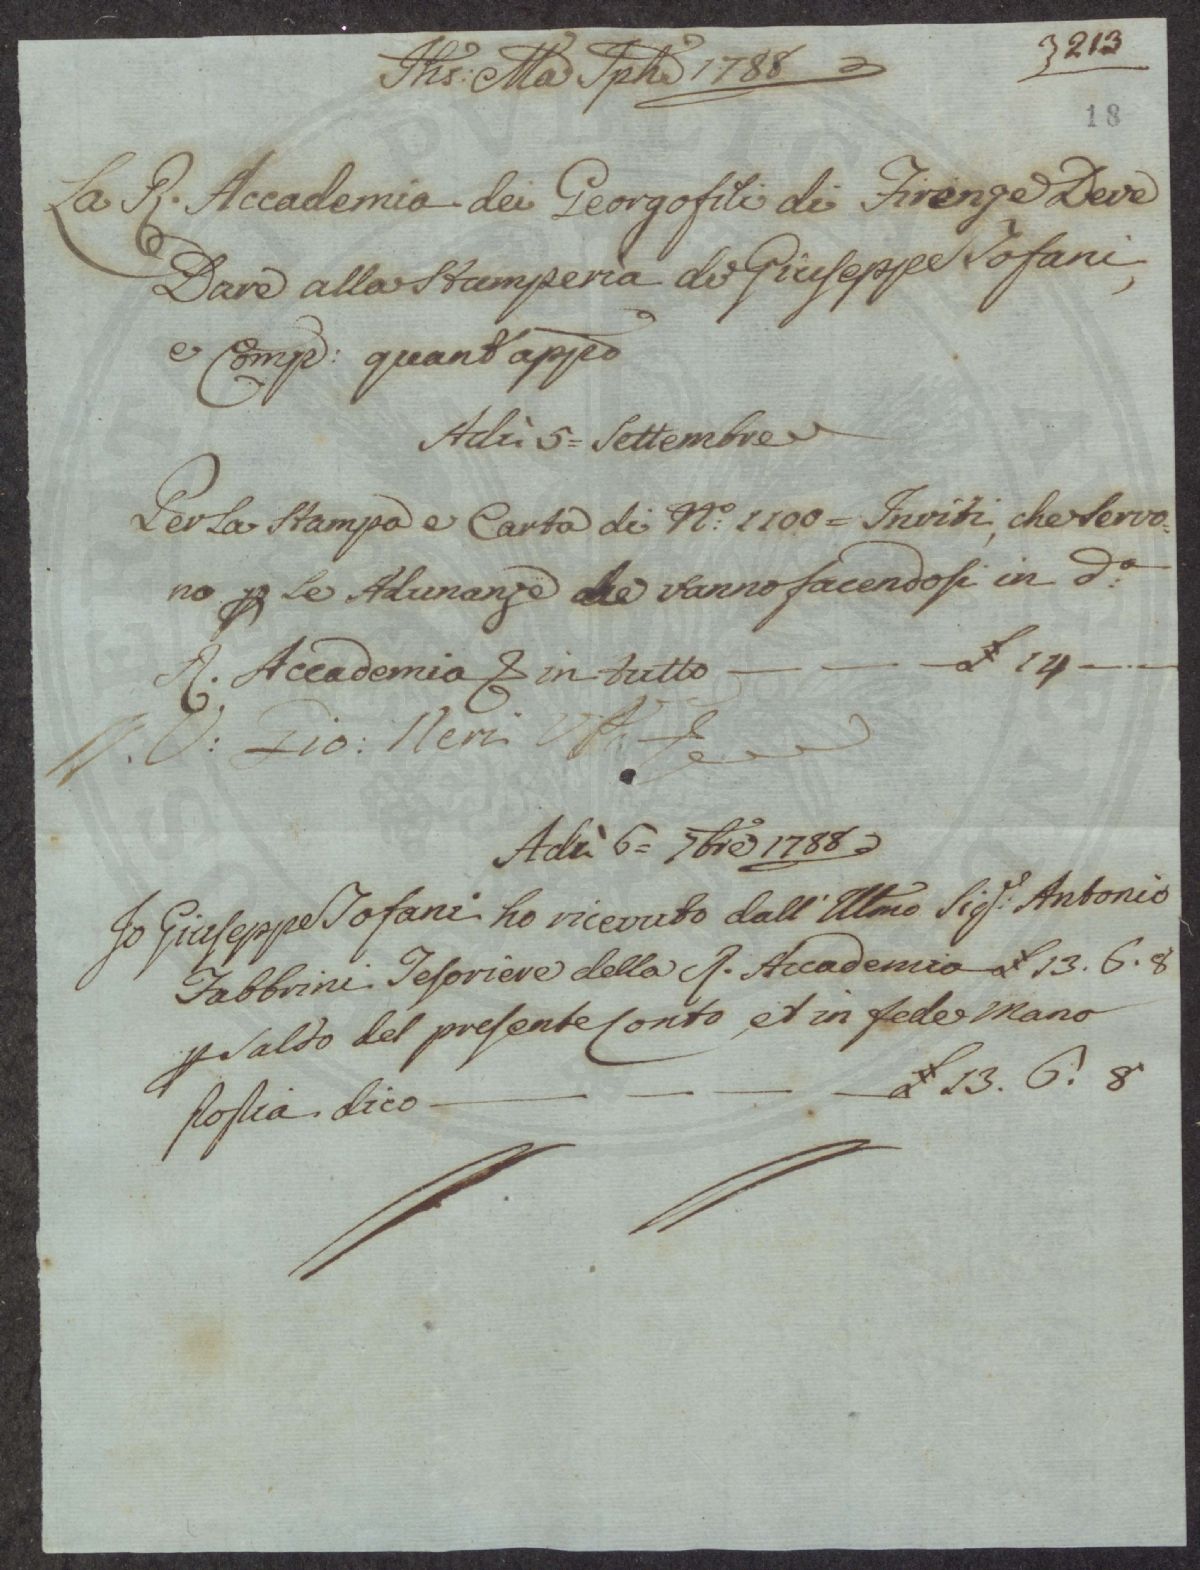 Jhs: Mã Jphõ 1788
3213
18
La R. Accademia dei Georgofili di Firenze Deve
Dare alla Stamperia di Giuseppe Tofani,
e Comp: quant'appo
Adi 5= Settembre
Per la Stampa e Carta di No: 1100= Inviti, che servo-
no p le Adunanze che vanno facendosi in da:
R. Accademia & in tutto — — — £ 14 — —
V. Gio: Neri
Adi 6= 7bre 1788
Jo Giuseppe Tofani ho ricevuto dall' Illmo Sigr: Antonio
Fabbrini Tesoriere della R. Accademia £ 13. 6. 8
p saldo del presente Conto, et in fede Mano
ppria dico — — — — £ 13. 6. 8